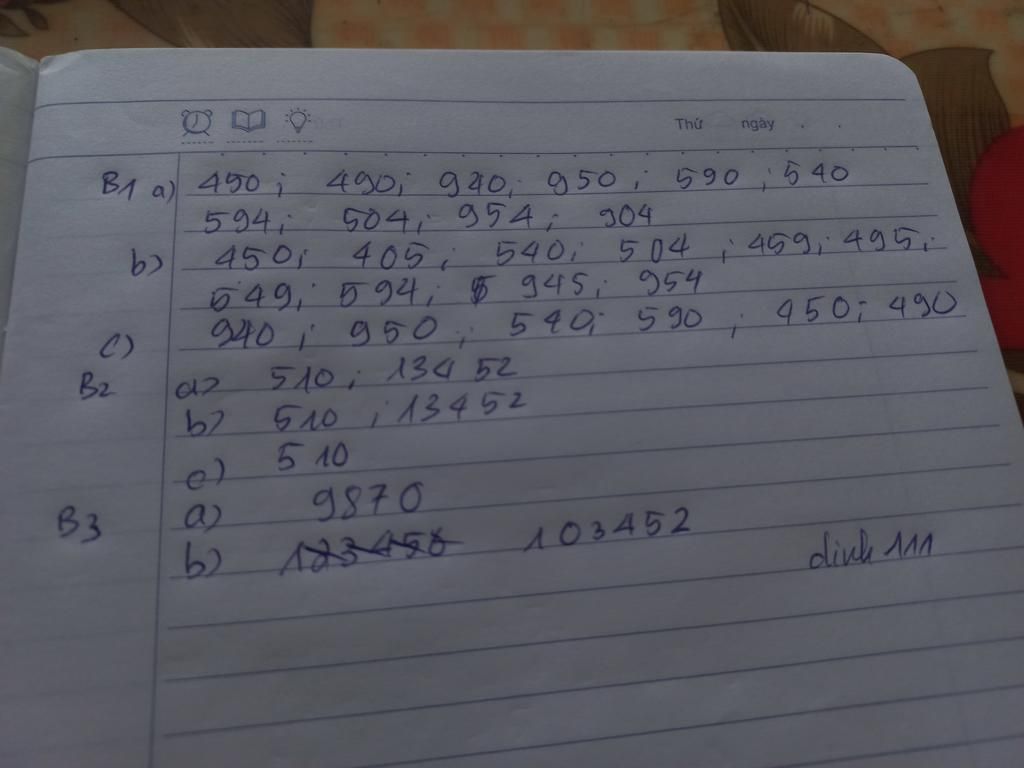 Thứ ngày
B1 a) 450; 490; 940; 950; 590; 540
594; 504; 954; 904
b) 450; 405; 540; 504; 459; 495;
549; 594; 945; 954
c) 940; 950; 540; 590; 450; 490
B2 a) 510; 13452
b) 510; 13452
c) 510
B3 a) 9870
b) 123456 103452
dinh 111